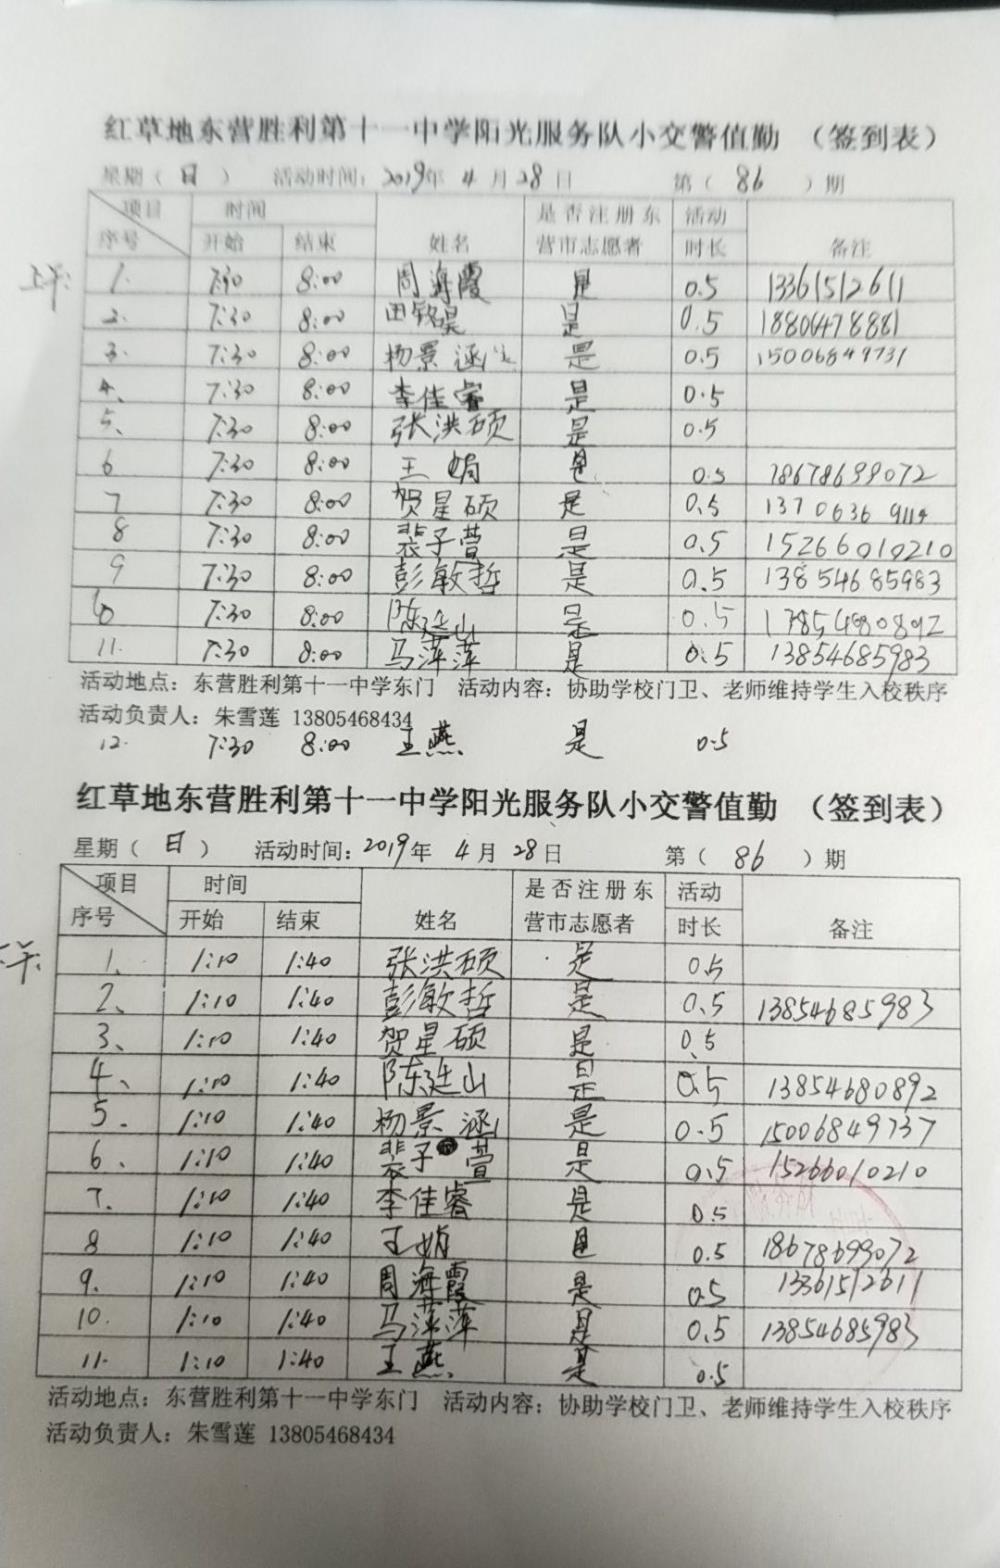 红草地东营胜利第十一中学阳光服务队小交警值勤 （签到表）
星期（ 日 ） 活动时间：2019年 4 月 28 日 第（ 86 ）期
项目 时间 是否注册东 活动
序号 开始 结束 姓名 营市志愿者 时长 备注
上午:
1. 7:30 8:00 周海霞 是 0.5 13361512611
2. 7:30 8:00 是 0.5 18804478881
3. 7:30 8:00 杨景涵 是 0.5 15006849731
4、 7:30 8:00 李佳睿 是 0.5
5、 7:30 8:00 张洪硕 是 0.5
6 7:30 8:00 王娟 是 0.5 18678699072
7 7:30 8:00 贺星硕 是 0.5 1370636
8 7:30 8:00 裴子萱 是 0.5 15266010210
9 7:30 8:00 彭敏哲 是 0.5 13854685983
10 7:30 8:00 陈延山 是 0.5
11. 7:30 8:00 马萍萍 是 0.5 13854685983
活动地点：东营胜利第十一中学东门 活动内容：协助学校门卫、老师维持学生入校秩序
活动负责人：朱雪莲 13805468434
12. 7:30 8:00 王燕 是 0.5
红草地东营胜利第十一中学阳光服务队小交警值勤 （签到表）
星期（ 日 ） 活动时间：2019年 4 月 28 日 第（ 86 ）期
项目 时间 是否注册东 活动
序号 开始 结束 姓名 营市志愿者 时长 备注
下午:
1、 1:10 1:40 张洪硕 是 0.5
2、 1:10 1:40 彭敏哲 是 0.5 13854685983
3、 1:10 1:40 贺星硕 是 0.5
4、 1:10 1:40 陈延山 是 0.5 13854680892
5. 1:10 1:40 杨景涵 是 0.5 15006849737
6、 1:10 1:40 裴子萱 是 0.5 15266010210
7. 1:10 1:40 李佳睿 是 0.5
8 1:10 1:40 王娟 是 0.5 18678699072
9. 1:10 1:40 周海霞 是 0.5 13361512611
10. 1:10 1:40 马萍萍 是 0.5 13854685983
11. 1:10 1:40 王燕 是 0.5
活动地点：东营胜利第十一中学东门 活动内容：协助学校门卫、老师维持学生入校秩序
活动负责人：朱雪莲 13805468434